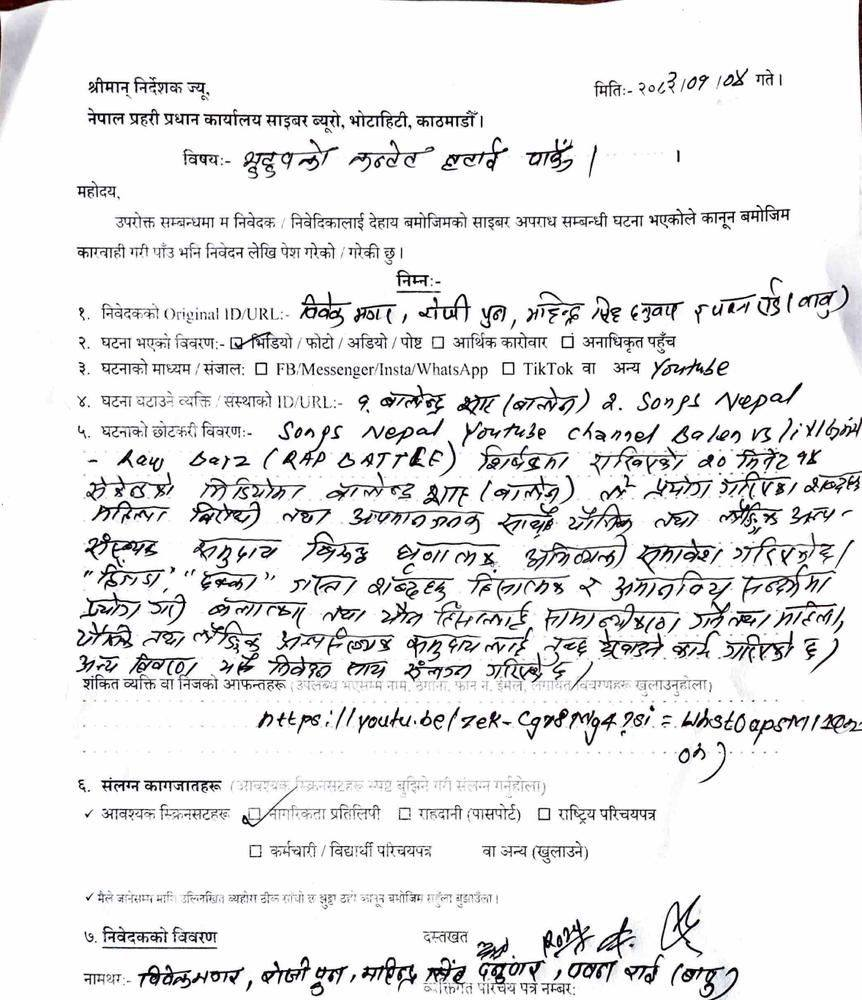 श्रीमान् निर्देशक ज्यू,
मितिः- २०८३।०१।०४ गते।
नेपाल प्रहरी प्रधान कार्यालय साइबर ब्यूरो, भोटाहिटी, काठमाडौँ।
विषयः- कन्टेन्ट हटाई पाऊँ।
महोदय,
उपरोक्त सम्बन्धमा म निवेदक / निवेदिकालाई देहाय बमोजिमको साइबर अपराध सम्बन्धी घटना भएकोले कानून बमोजिम
कारवाही गरी पाउँ भनि निवेदन लेखि पेश गरेको / गरेकी छु।
निम्नः-
१. निवेदकको Original ID/URL:- विवेक मगर, रोजी पुन, महिन्द्र सिंह दनुवार र पवन राई (बाबु)
२. घटना भएको विवरणः- ☑ भिडियो / फोटो / अडियो / पोष्ट ☐ आर्थिक कारोवार ☐ अनाधिकृत पहुँच
३. घटनाको माध्यम / संजाल: ☐ FB/Messenger/Insta/WhatsApp ☐ TikTok वा अन्य Youtube
४. घटना घटाउने व्यक्ति / संस्थाको ID/URL:- १. बालेन्द्र शाह (बालेन) २. Songs Nepal
५. घटनाको छोटकरी विवरणः- Songs Nepal Youtube channel Balen vs
- Raw Barz (RAP BATTLE) शिर्षकमा राखिएको २० मिनेट १४
सेकेण्डको भिडियोमा बालेन्द्र शाह (बालेन) ले प्रयोग गरिएका शब्दहरू
महिला विरोधी तथा अपमानजनक साथै यौनिक तथा लैङ्गिक अल्प-
संख्यक समुदाय विरुद्ध घृणात्मक अभिव्यक्ती समावेश गरिएको छ।
"हिजडा", "छक्का" जस्ता शब्दहरू हिंसात्मक र अमानविय सन्दर्भमा
प्रयोग गरी बलात्कार तथा यौन हिंसालाई सामान्यीकरण गर्ने तथा महिला,
यौनिक तथा लैङ्गिक अल्पसंख्यक समुदायलाई तुच्छ देखाउने कार्य गरिएको छ।
अन्य विवरण यसै निवेदन साथ संलग्न गरिएको छ।
शंकित व्यक्ति वा निजको आफन्तहरू (उपलब्ध भएसम्म नाम, ठेगाना, फोन नं. ईमेल, लगायत विवरणहरू खुलाउनुहोला)
https://youtu.be/
६. संलग्न कागजातहरू (आवश्यक स्क्रिनसटहरू स्पष्ट बुझिने गरी संलग्न गर्नुहोला)
✓ आवश्यक स्क्रिनसटहरू ☑ नागरिकता प्रतिलिपी ☐ राहदानी (पासपोर्ट) ☐ राष्ट्रिय परिचयपत्र
☐ कर्मचारी / विद्यार्थी परिचयपत्र वा अन्य (खुलाउने)
✓ मैले जानेसम्म माथि उल्लिखित व्यहोरा ठीक साँचो छ झुठ्ठा ठहरे कानून बमोजिम सहुँला बुझाउँला।
७. निवेदकको विवरण दस्तखत
नामथरः- विवेक मगर, रोजी पुन, महिन्द्र सिंह दनुवार, पवन राई (बाबु)
व्यक्तिगत परिचय पत्र नम्बर: